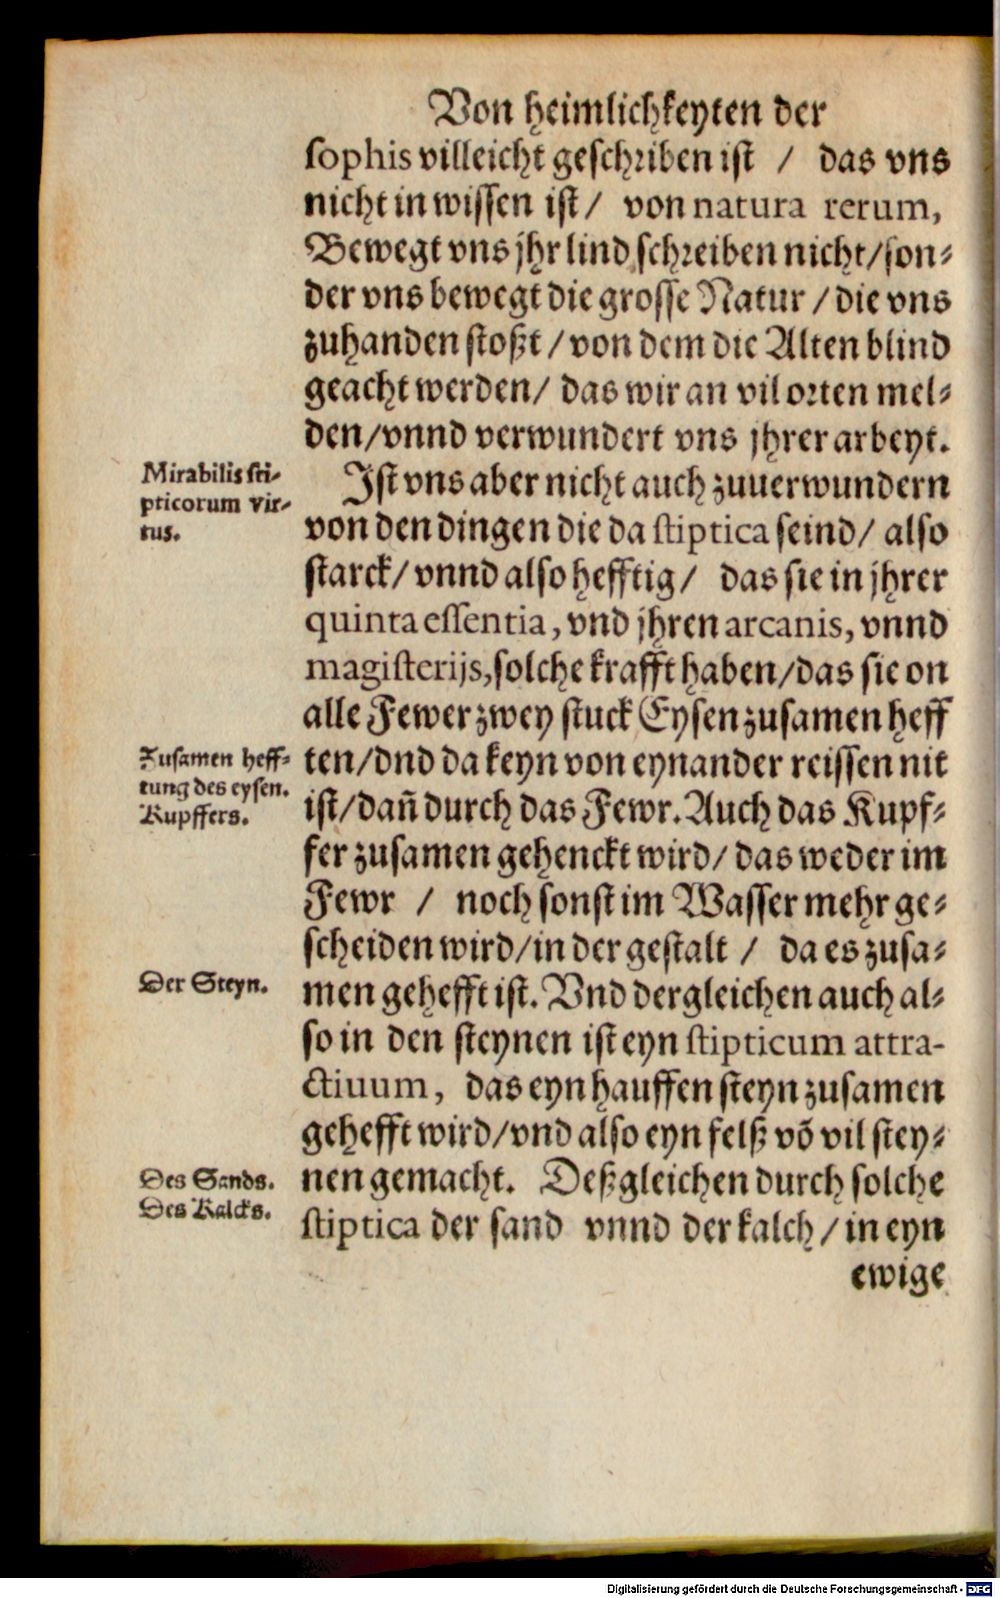 Von heimlichkeyten der
sophis villeicht geschriben ist / das vns
nicht in wissen ist / von natura rerum,
Bewegt vns jhr lind schreiben nicht/son⸗
der vns bewegt die grosse Natur / die vns
zuhanden stoßt / von dem die Alten blind
geacht werden/ das wir an vil orten mel⸗
den/vnnd verwundert vns jhrer arbeyt.
Mirabilis sti⸗
pticorum vir⸗
tus.
Ist vns aber nicht auch zuuerwundern
von den dingen die da stiptica seind/ also
starck/ vnnd also hefftig/ das sie in jhrer
quinta essentia, vnd jhren arcanis, vnnd
magisterijs, solche krafft haben/das sie on
alle Fewer zwey stuck Eysen zusamen heff
Zusamen heff⸗
tung des eysen.
Kupffers.
ten/dnd da keyn von eynander reissen nit
ist/dañ durch das Fewr. Auch das Kupf⸗
fer zusamen gehenckt wird/ das weder im
Fewr / noch sonst im Wasser mehr ge⸗
scheiden wird/in der gestalt / da es zusa⸗
Der Steyn.
men gehefft ist. Vnd dergleichen auch al⸗
so in den steynen ist eyn stipticum attra-
ctiuum, das eyn hauffen steyn zusamen
gehefft wird/vnd also eyn felß võ vil stey⸗
Des Sands.
Des Kalcks.
nen gemacht. Deßgleichen durch solche
stiptica der sand vnnd der kalch / in eyn
ewige
Digitalisierung gefördert durch die Deutsche Forschungsgemeinschaft - DFG